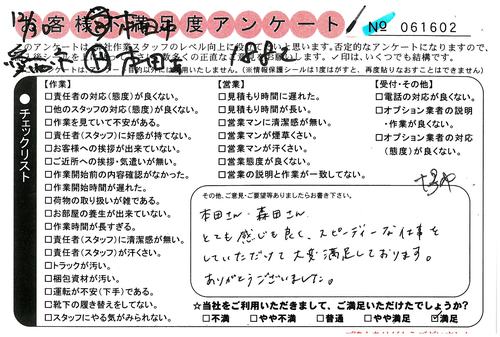 お客様満足度アンケート
№ 061602
12/30
【作業】
□責任者の対応(態度)が良くない。
□他のスタッフの対応(態度)が良くない。
□作業を見ていて不安がある。
□責任者(スタッフ)に好感が持てない。
□お客様への挨拶が出来ていない。
□ご近所への挨拶・気遣いが無い。
□作業開始前の内容確認がなかった。
□作業開始時間が遅れた。
□荷物の取り扱いが雑である。
□お部屋の養生が出来ていない。
□作業時間が長すぎる。
□責任者(スタッフ)に清潔感が無い。
□責任者(スタッフ)が汗くさい。
□トラックが汚い。
□梱包資材が汚い。
□運転が不安(下手)である。
□靴下の履き替えをしてない。
□スタッフにやる気がみられない。
【営業】
□見積もり時間に遅れた。
□見積もり時間が長い。
□営業マンに清潔感が無い。
□営業マンが煙草くさい。
□営業マンが汗くさい。
□営業態度が良くない。
□営業の説明と作業が一致してない。
【受付・その他】
□電話の対応が良くない。
□オプション業者の説明
・作業が良くない。
□オプション業者の対応
(態度)が良くない。
●チェックリスト
その他、ご意見・ご要望等ありましたらお書き下さい。
本田さん・森田さん
とても感じも良く、スピーディーな仕事を
していただいて大変満足しております。
ありがとうございました。
☆当社をご利用いただきまして、ご満足いただけたでしょうか?
□不満 □やや不満 □普通 □やや満足 ☑満足